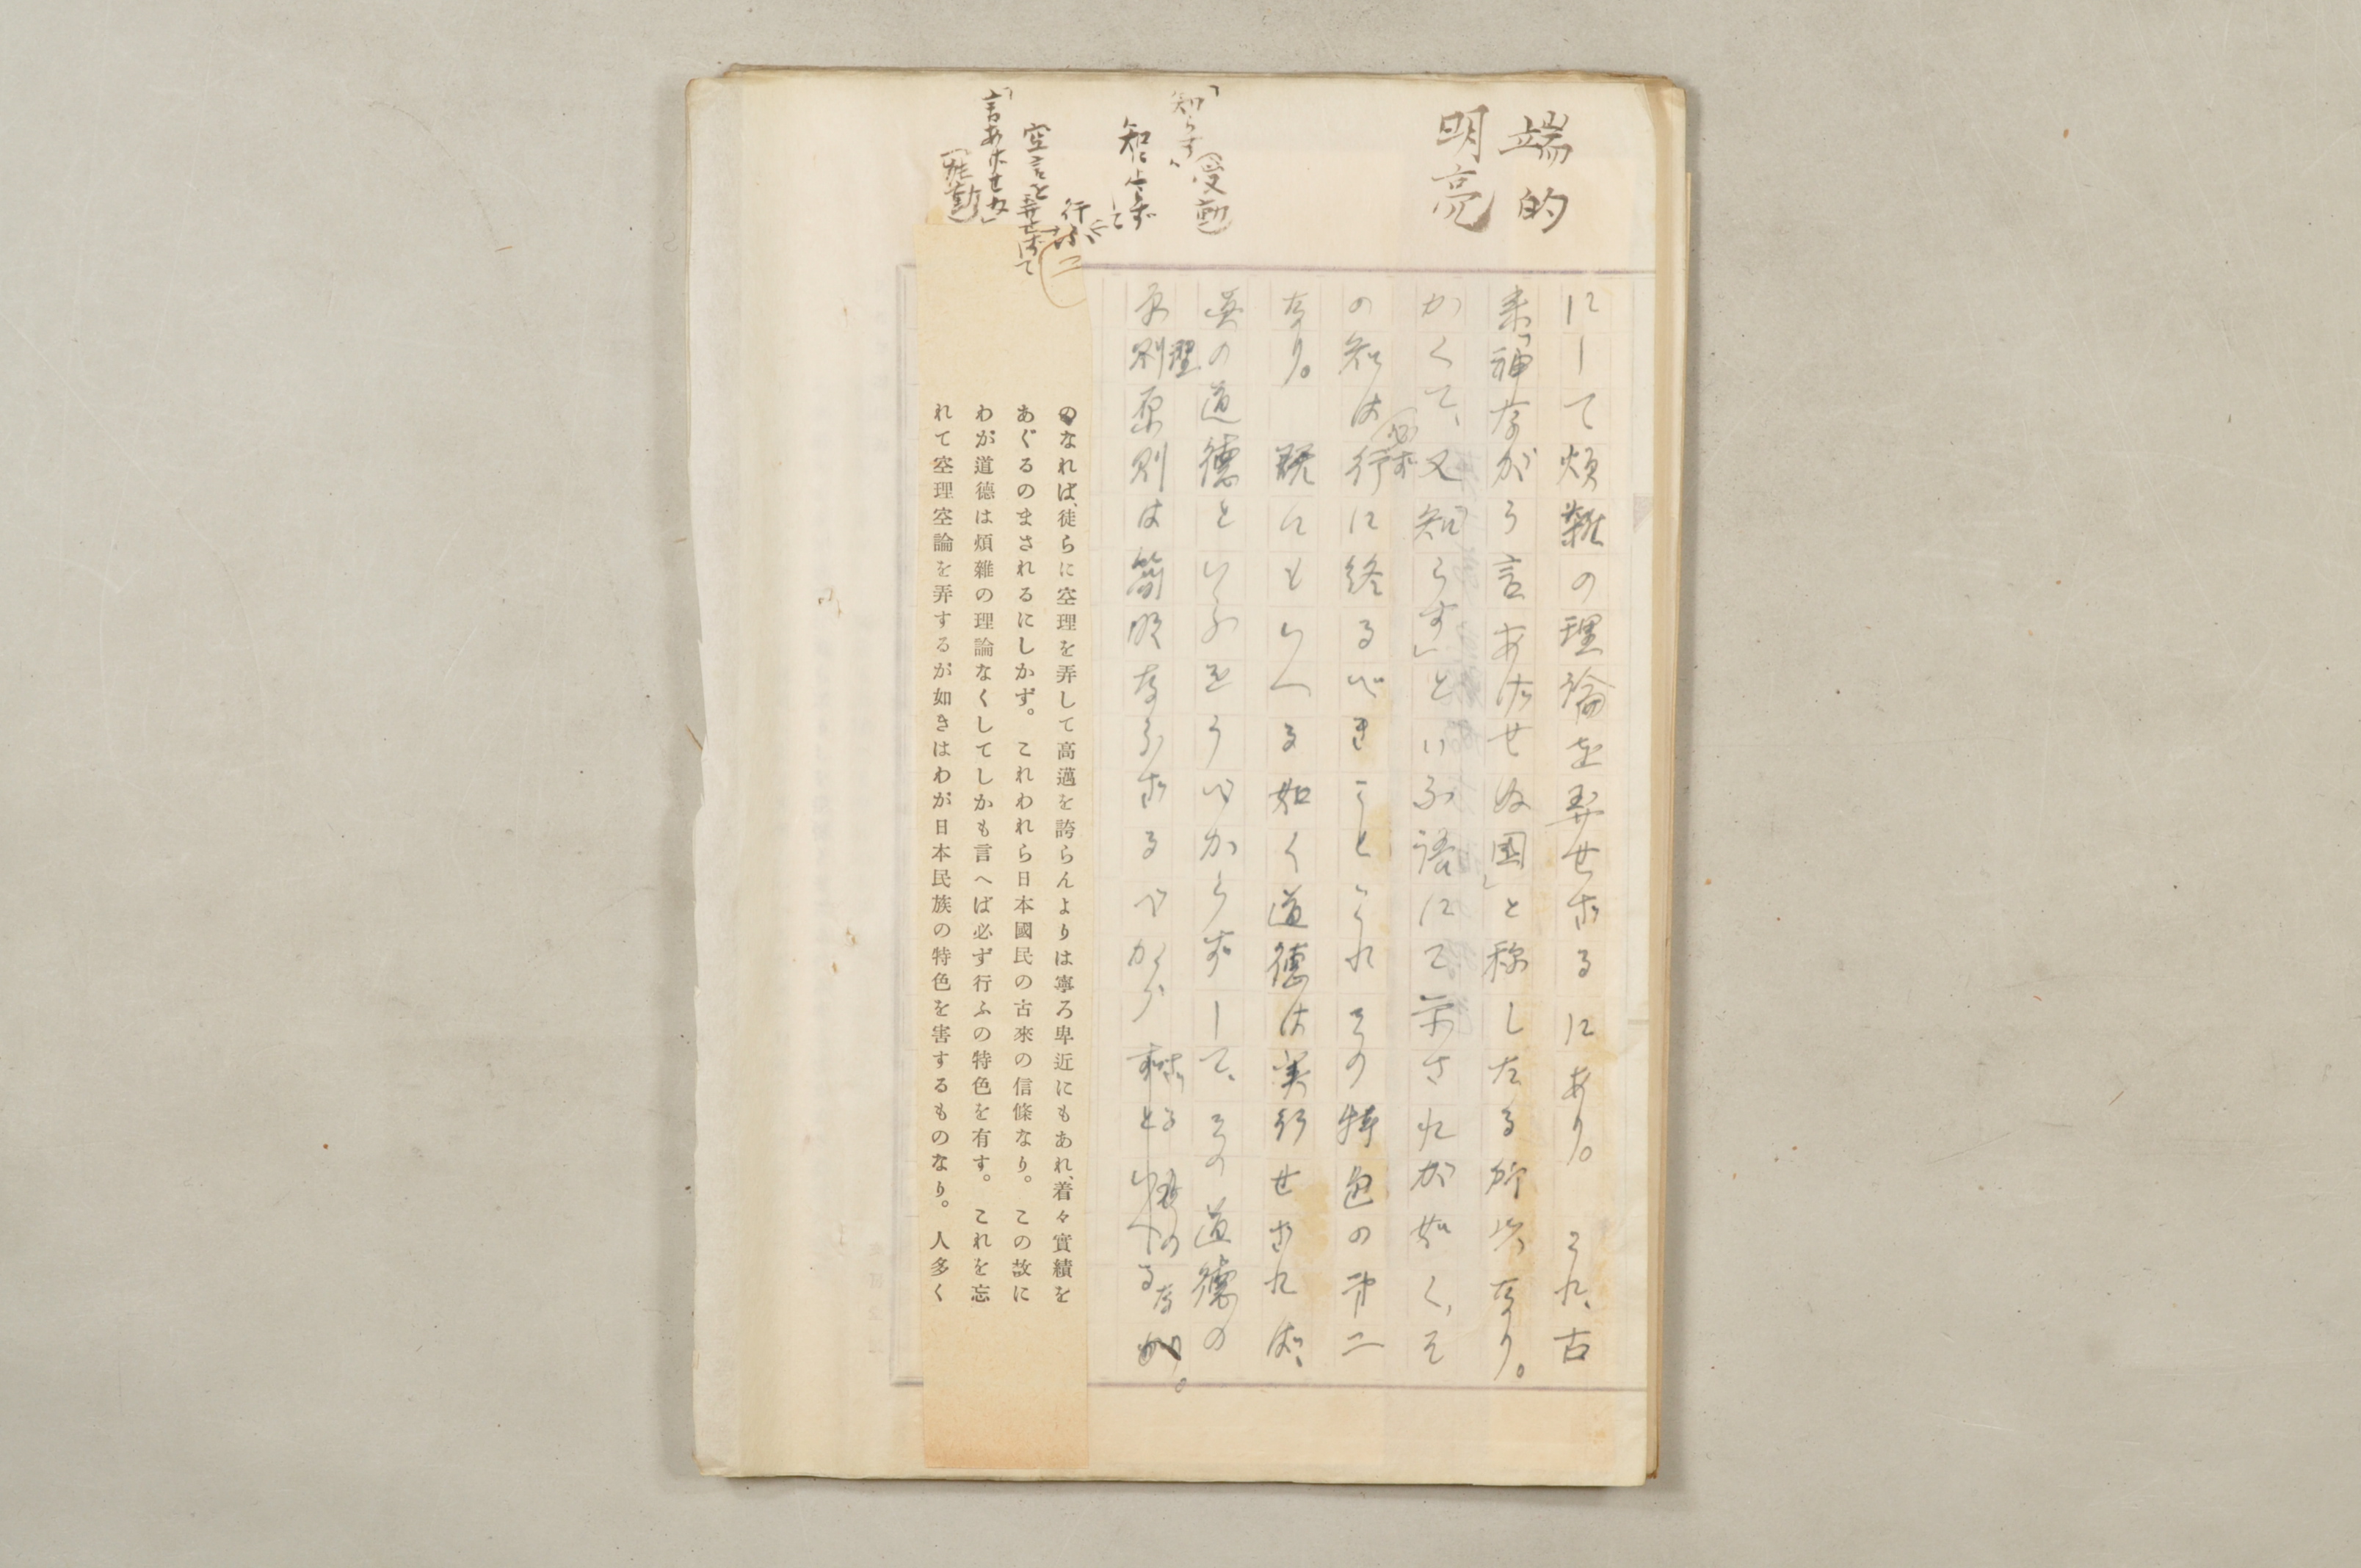 端的
明亮
「知らす」
(受動)
知に止らず
して
行ふ
空言を弄せずして
「言あげせぬ」
にして煩雜の理論を弄せざるにあり。 これ、古
来「神ながら言あげせぬ国」と称したる所以なり。
かくて、又「知らす」といふ語にて示されたが如く、そ
の知は必ず行に終るべきことこれその特色の第二
なり。 既にもいへる如く道徳は実行せざれば、
眞の道徳といふをうべからずして、その道徳の
原理原則は簡明ならざるべからざるものなり。
二
のなれば、徒らに空理を弄して高邁を誇らんよりは寧ろ卑近にもあれ、着々實績を
あぐるのまされるにしかず。 これわれら日本國民の古來の信條なり。 この故に
わが道德は煩雜の理論なくしてしかも言へば必ず行ふの特色を有す。 これを忘
れて空理空論を弄するが如きはわが日本民族の特色を害するものなり。 人多く